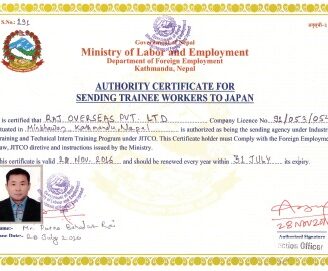 S.No: 291
Government of Nepal
Ministry of Labor and Employment
Department of Foreign Employment
Kathmandu, Nepal
AUTHORITY CERTIFICATE FOR
SENDING TRAINEE WORKERS TO JAPAN
is certified that RAJ OVERSEAS PVT. LTD Company Licence No. 92/053/054
tuated in Kathmandu, Nepal is authorized as being the sending agency under Industri
raining and Technical Intern Training Program under JITCO. This Certificate holder must Comply with the Foreign Employme
aw, JITCO diretive and instructions issued by the Ministry.
his certificate is valid 28 NOV. 2016 and should be renewed every year within 31 JULY of its expiry.
Name:- Mr.
sue Date:- 28 July 2010
28 NOV 201
Authorized Signature
ction Officer